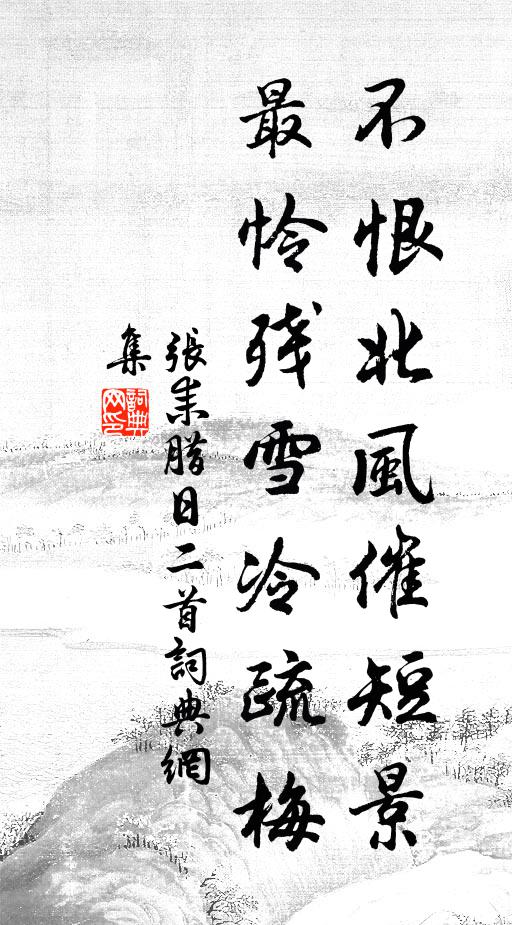 不恨北風催短景
最怜残雪冷疏梅
張耒腊日二首詞典網
集
詞典
网印